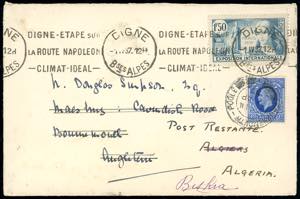 DIGNE-ETAPE sur
LA ROUTE NAPOLEON
CLIMAT-IDEAL
DIGNE
BSES ALPES
DIGNE-ETAPE sur
LA ROUTE NAPOLEON
-CLIMAT-IDEAL-
DIGNE
BSES ALPES
1F50
EXPOSITION INTERNATIONALE
Douglas Simpson, Esq.
Cavendish Road
Bournemouth
Angleterre
POST RESTANTE.
ALGIERS
ALGERIA.
Biskra